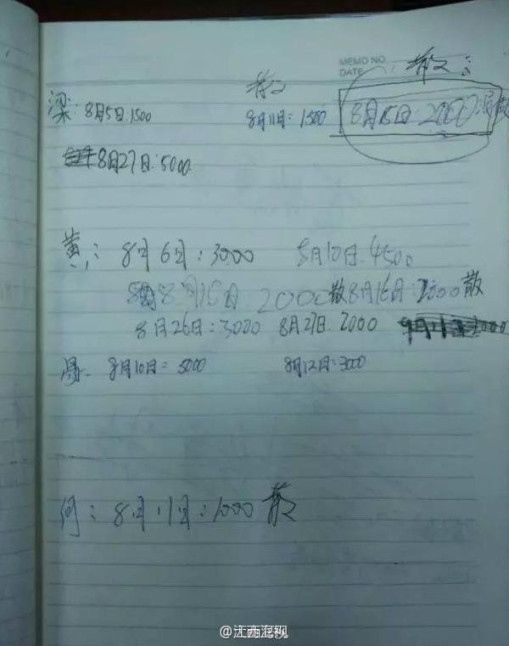 MEMO NO.
DATE
散
散:
梁: 8月5日:1500 8月11日:1500 8月15日:2000
8月27日:5000
黄: 8月6日:3000 8月10日.4500
8月16日 2000散 8月16日:2000散
8月26日:3000 8月27日.2000
8月10日:5000 8月12日:3000
何: 8月11日:1000 散
@江西卫视